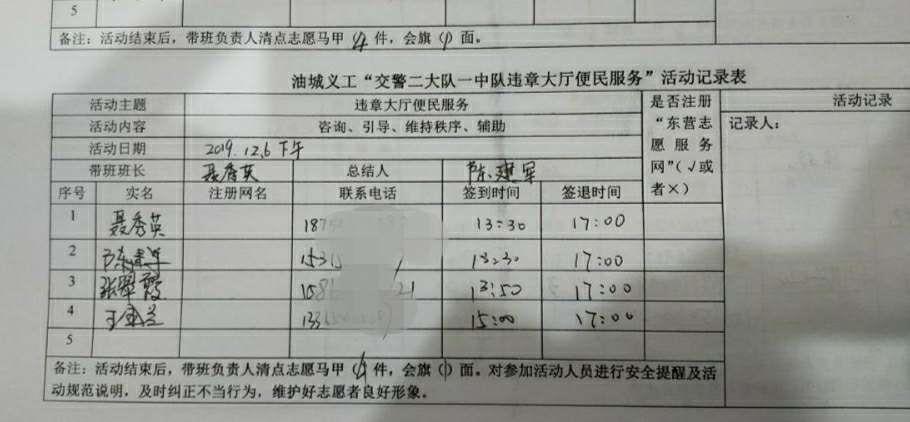 5
备注：活动结束后，带班负责人清点志愿马甲（4）件，会旗（1）面。
油城义工“交警二大队一中队违章大厅便民服务”活动记录表
活动主题 违章大厅便民服务 是否注册“东营志愿服务网”（√或者×） 活动记录
活动内容 咨询、引导、维持秩序、辅助 记录人：
活动日期 2019.12.6下午
带班班长 聂秀英 总结人 陈建军
序号 实名 注册网名 联系电话 签到时间 签退时间
1 聂秀英 187 13:30 17:00
2 陈建军 1531 13:30 17:00
3 张翠霞 158 21 13:50 17:00
4 133 15:00 17:00
5
备注：活动结束后，带班负责人清点志愿马甲（4）件，会旗（1）面。对参加活动人员进行安全提醒及活
动规范说明，及时纠正不当行为，维护好志愿者良好形象。